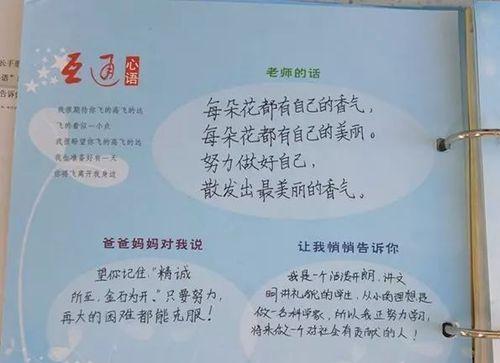 长手册
语"
告诉
互通
心语
老师的话
我很期待你飞的高飞的远
飞的看似一小点
我很盼望你飞的高飞的远
我也准备好有一天
你将飞离开我身边
每朵花都有自己的香气，
每朵花都有自己的美丽。
努力做好自己，
散发出最美丽的香气。
爸爸妈妈对我说
望你记住，"精诚
所至，金石为开。"只要努力，
再大的困难都能克服！
让我悄悄告诉你
我是一个活泼开朗，讲文
明讲礼貌的学生，从小的理想是
做一名科学家，所以我正努力学习，
将来做一个对社会有贡献的人！